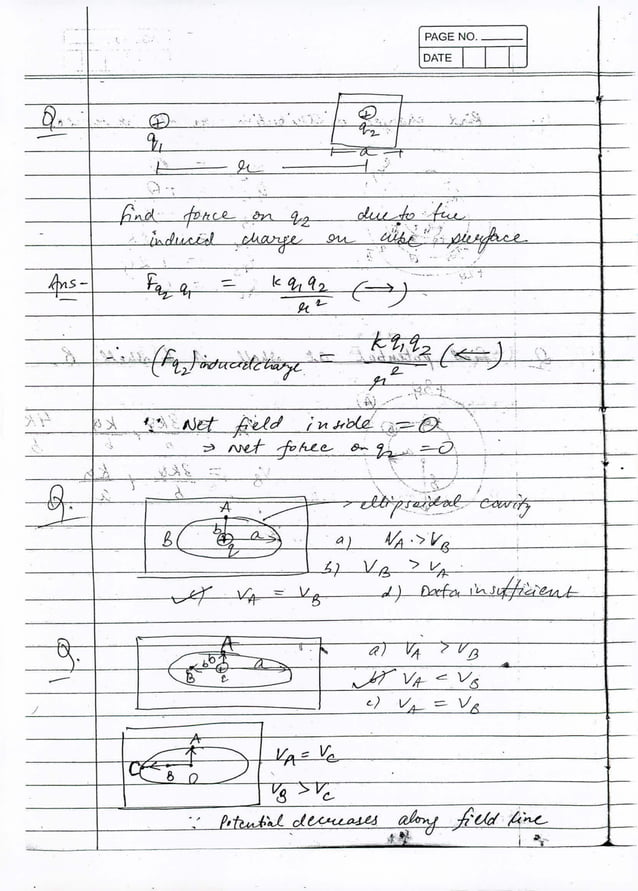 PAGE NO.
DATE
Q.
+ q1
+ q2
a
r
find force on q2 due to the
induced charge on cube surface
Ans- Fq2 q1 = k q1 q2 / r² (→)
(Fq2) induced charge = k q1 q2 / r² (←)
∵ Net field inside = 0
⇒ Net force on q2 = 0
Q. A → ellipsoidal cavity
B b + q a a) VA > VB
b) VB > VA
✓c) VA = VB d) Data insufficient
Q. A a) VA > VB
B b b + q a ✓b) VA < VB
c) VA = VB
A
C B O VA = VC
VB > VC
∵ Potential decreases along field line